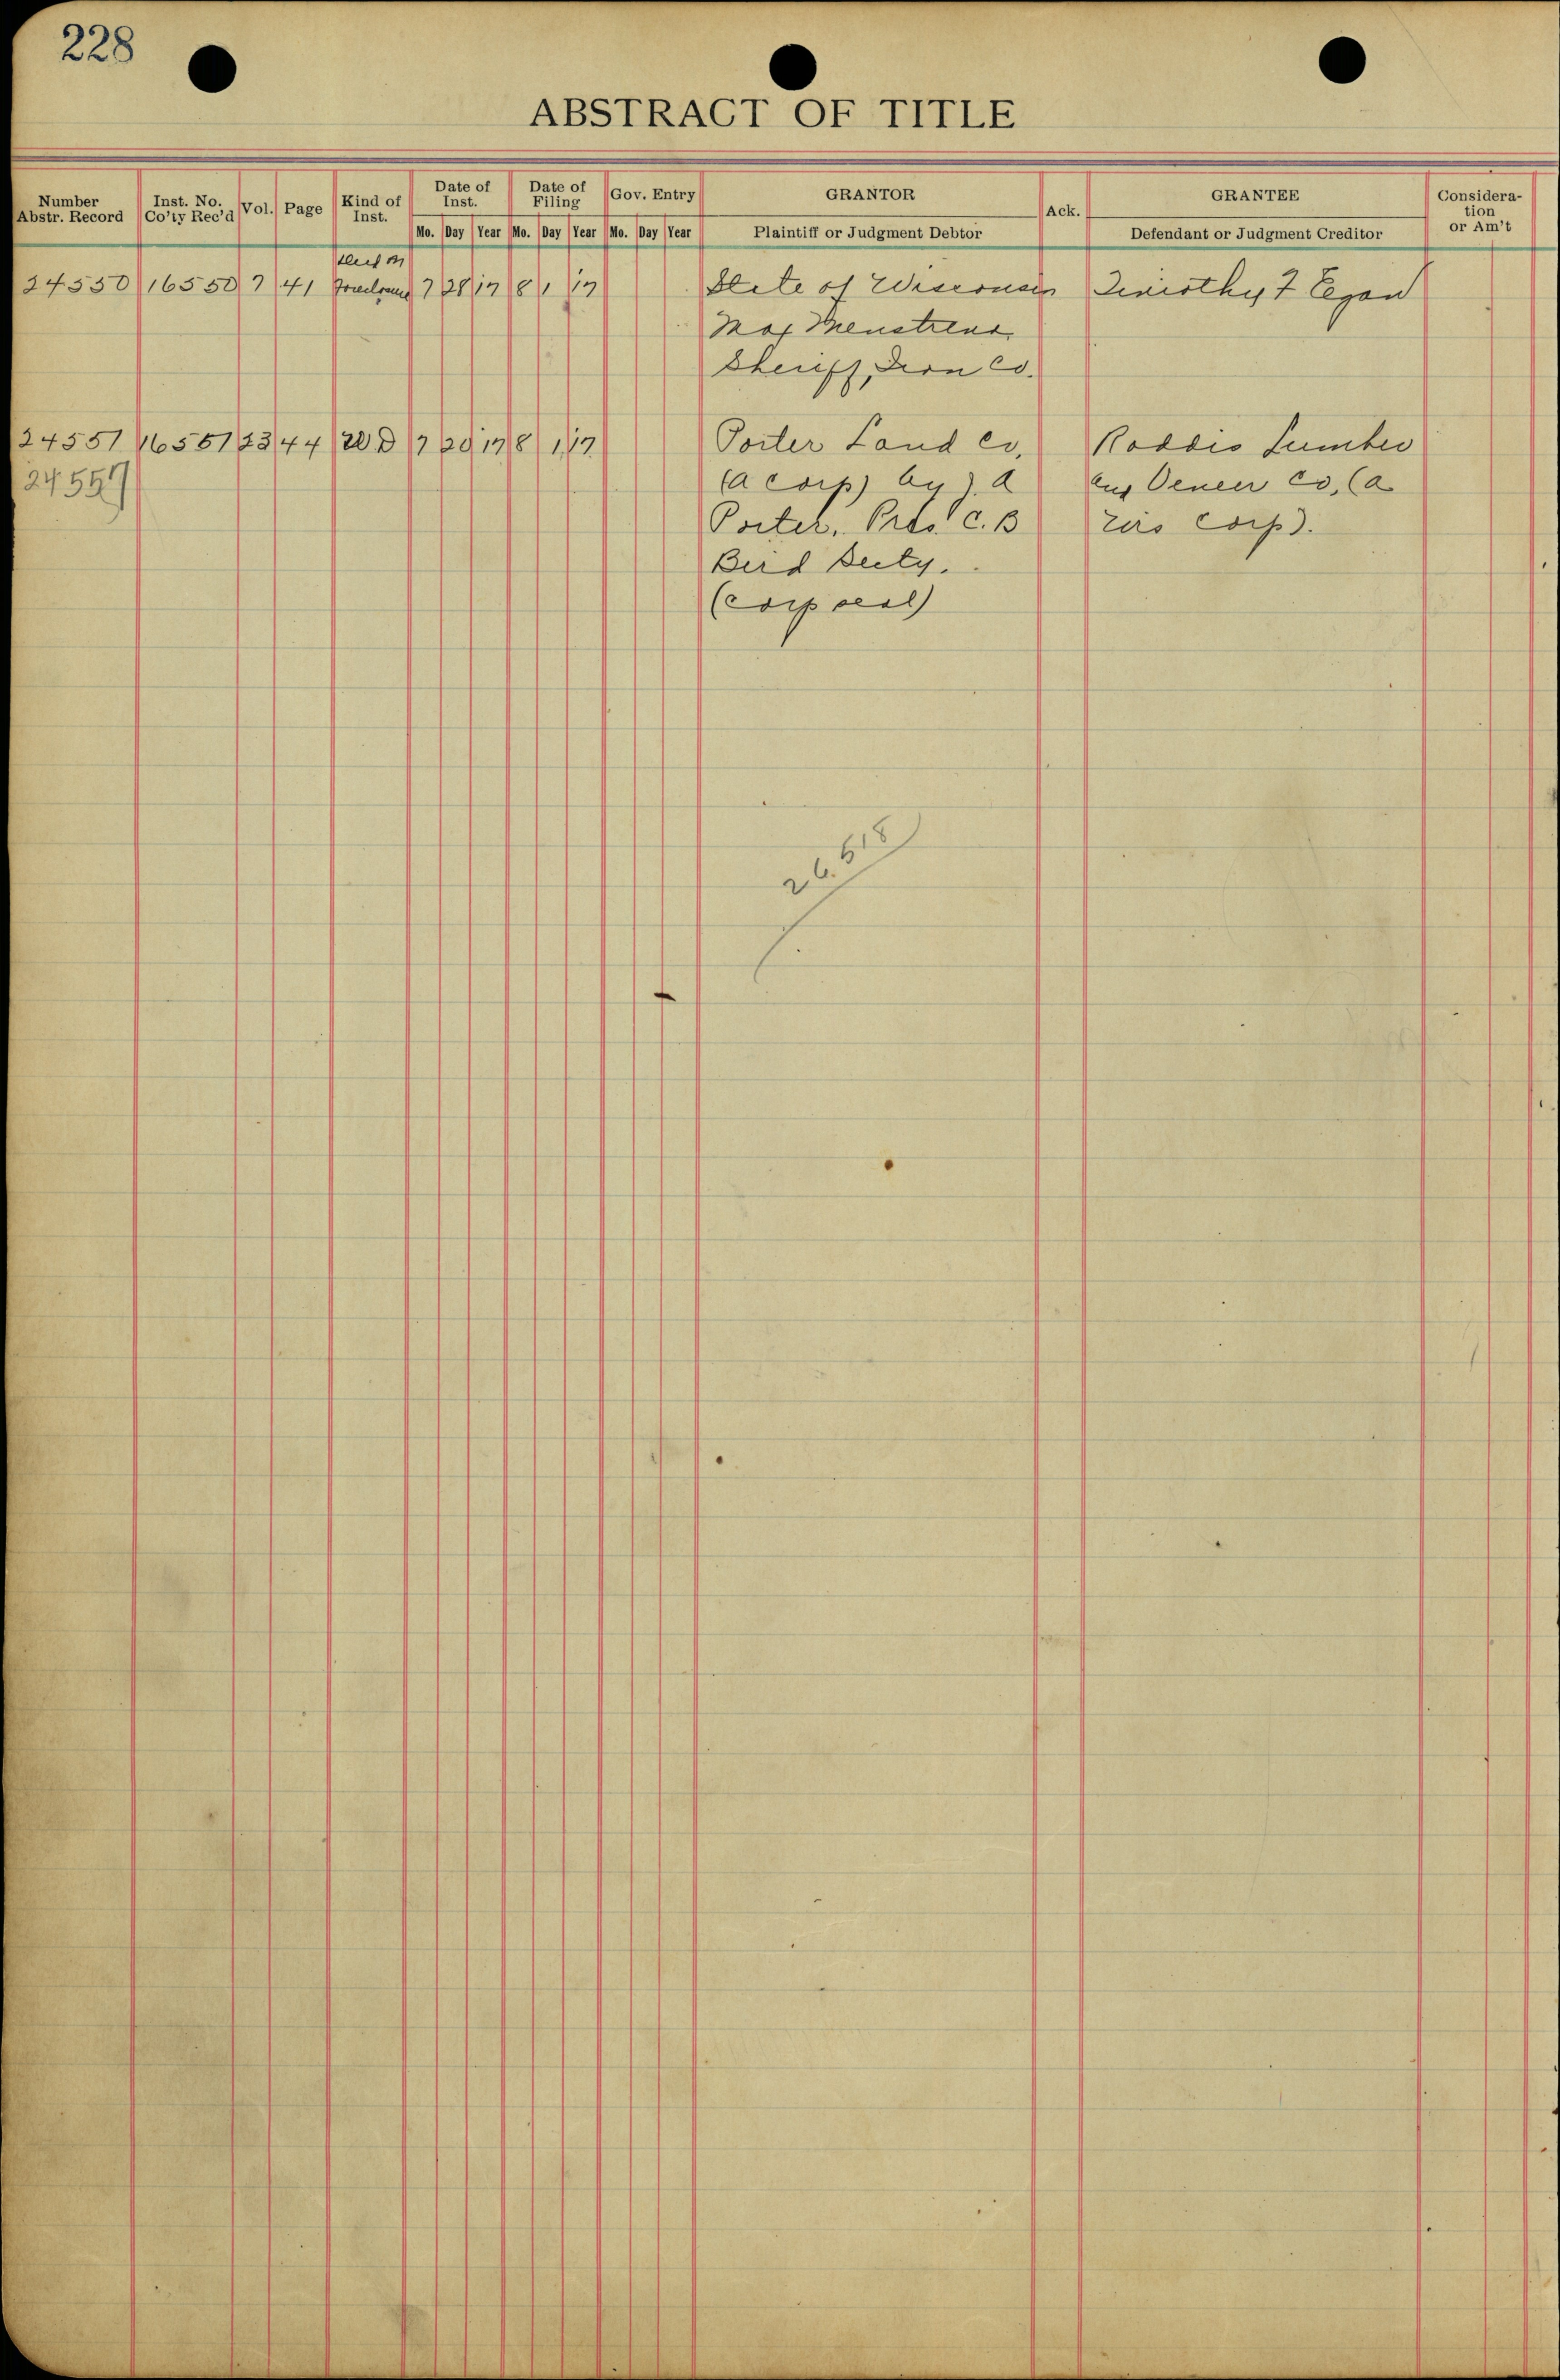 228
ABSTRACT OF TITLE
Number Abstr. Record Inst. No. Co'ty Rec'd Vol. Page Kind of Inst. Date of Inst. Date of Filing Gov. Entry GRANTOR Ack. GRANTEE Considera-tion or Am't
Mo. Day Year Mo. Day Year Mo. Day Year Plaintiff or Judgment Debtor Defendant or Judgment Creditor
Deed on
24550 16550 7 41 Foreclosure 7 28 17 8 1 17 State of Wisconsin Timothy F Egan
Max
Sheriff, Iron Co.
24551 16551 23 44 W D 7 20 17 8 1 17 Porter Land Co, Roddis Lumber
24557 (a corp) by J. A and Veneer Co, (a
Porter, Pres. C. B Wis Corp).
Bird Secty.
(Corp seal)
26.518